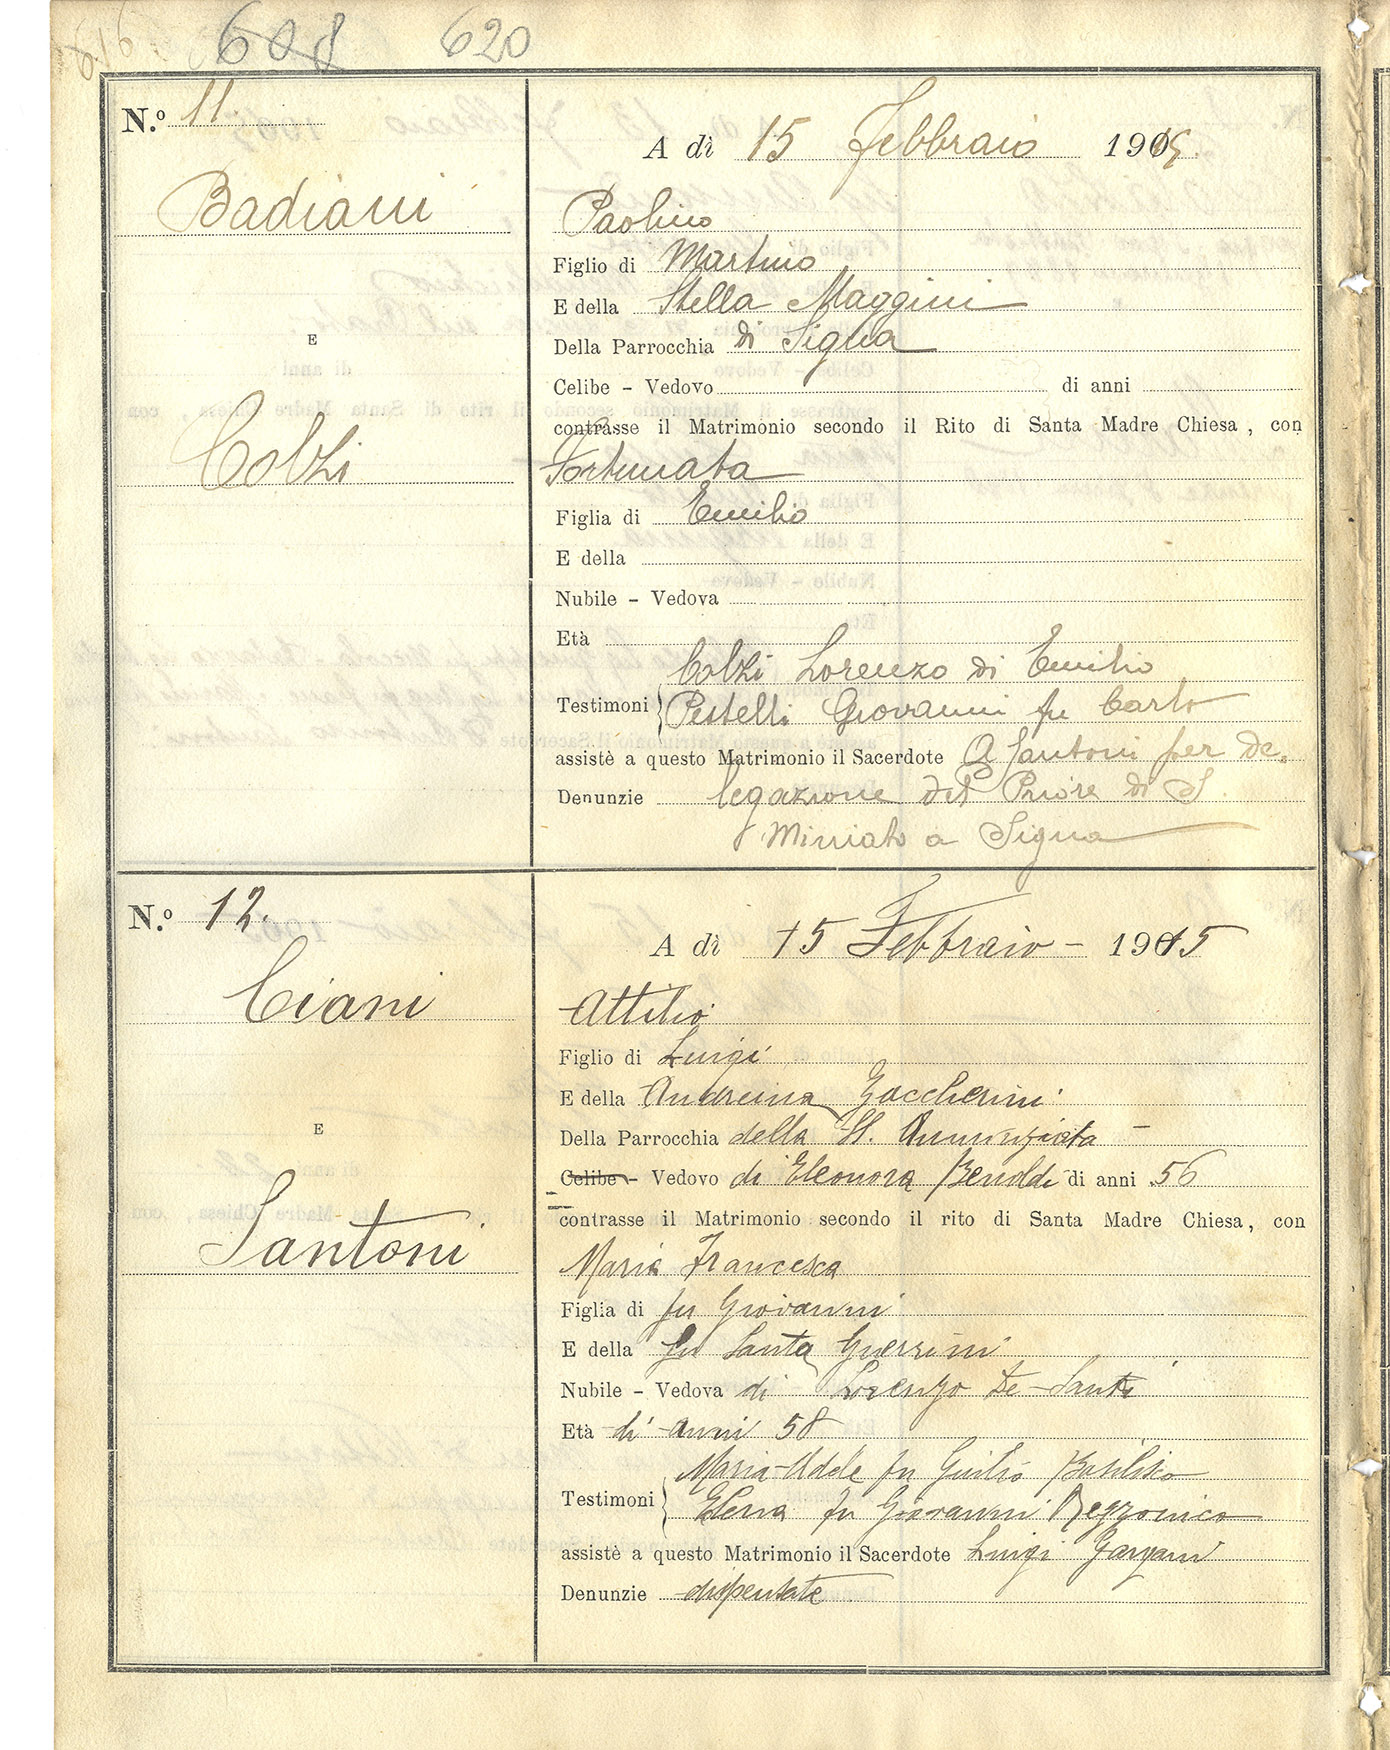 608 620
N.º 11.
A dì 15 Febbraio 1915.
Badiani
Paolino
Figlio di Martino
E della Stella Maggini
Della Parrocchia di Signa
E
Celibe - Vedovo di anni
contrasse il Matrimonio secondo il Rito di Santa Madre Chiesa, con
Colzi
Fortunata
Figlia di Emilio
E della
Nubile - Vedova
Età
Colzi Lorenzo di Emilio
Testimoni
Pestelli Giovanni fu Carlo
assistè a questo Matrimonio il Sacerdote A Santoni per de-
Denunzie legazione del Priore di S.
Miniato a Signa
N.º 12.
A dì 15 Febbraio - 1915
Ciani
Attilio
Figlio di Luigi
E della Andreina Zaccherini
Della Parrocchia della SS. Annunziata -
E
Celibe - Vedovo di Eleonora di anni 56
contrasse il Matrimonio secondo il rito di Santa Madre Chiesa, con
Santoni
Maria Francesca
Figlia di fu Giovanni
E della fu Santa Guerrini
Nubile - Vedova di Lorenzo De-Santi
Età di anni 58
Maria-Adele fu Giulio Basilisco
Testimoni
Elena fu Giovanni Rezzonico
assistè a questo Matrimonio il Sacerdote Luigi
Denunzie dispensate